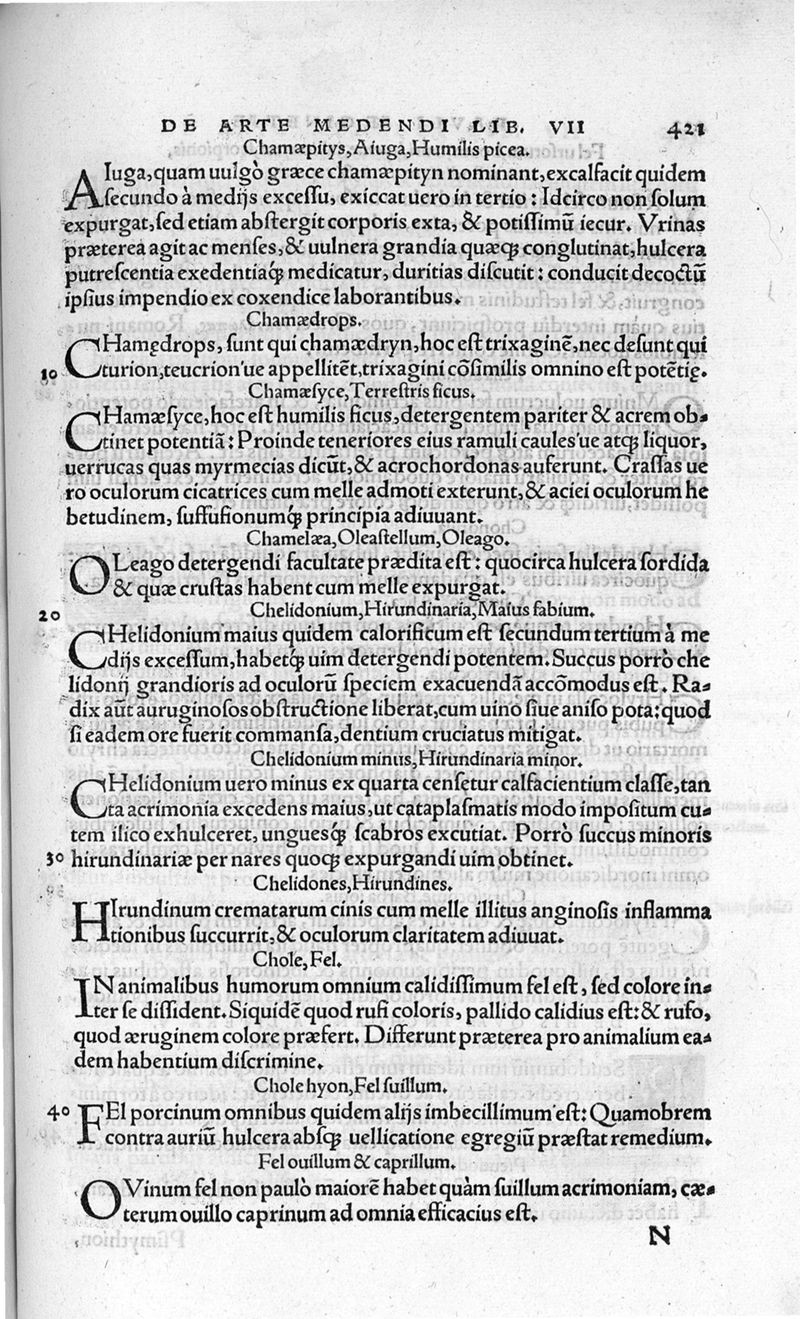 DE ARTE MEDENDI LIB. VII 421
Chamæpitys, Aiuga, Humilis picea.
AIuga, quam uulgò græce chamæpityn nominant, excalfacit quidem
ſecundo à medijs exceſſu, exiccat uero in tertio: Idcirco non ſolum
expurgat, ſed etiam abſtergit corporis exta, & potiſſimū iecur. Vrinas
præterea agit ac menſes, & uulnera grandia quæq́ conglutinat, hulcera
putreſcentia exedentiaq́ medicatur, duritias diſcutit: conducit decoctū
ipſius impendio ex coxendice laborantibus.
Chamædrops.
CHamędrops, ſunt qui chamædryn, hoc eſt trixaginē, nec deſunt qui
10 turion, teucrion'ue appellitēt, trixagini cōſimilis omnino eſt potētię.
Chamæſyce, Terreſtris ficus.
CHamæſyce, hoc eſt humilis ficus, detergentem pariter & acrem ob-
tinet potentiā: Proinde teneriores eius ramuli caules'ue atq́ liquor,
uerrucas quas myrmecias dicūt, & acrochordonas auferunt. Craſſas ue
ro oculorum cicatrices cum melle admoti exterunt, & aciei oculorum he
betudinem, ſuffuſionumq́ principia adiuuant.
Chamelæa, Oleaſtellum, Oleago.
OLeago detergendi facultate prædita eſt: quocirca hulcera ſordida
& quæ cruſtas habent cum melle expurgat.
20 Chelidonium, Hirundinaria, Maius fabium.
CHelidonium maius quidem calorificum eſt ſecundum tertium à me
dijs exceſſum, habetq́ uim detergendi potentem. Succus porrò che
lidonij grandioris ad oculorū ſpeciem exacuendā accōmodus eſt. Ra-
dix aūt auruginoſos obſtructione liberat, cum uino ſiue aniſo pota: quod
ſi eadem ore fuerit commanſa, dentium cruciatus mitigat.
Chelidonium minus, Hirundinaria minor.
CHelidonium uero minus ex quarta cenſetur calfacientium claſſe, tan
ta acrimonia excedens maius, ut cataplaſmatis modo impoſitum cu-
tem ilico exhulceret, ungueſq́ ſcabros excutiat. Porrò ſuccus minoris
30 hirundinariæ per nares quoq́ expurgandi uim obtinet.
Chelidones, Hirundines.
HIrundinum crematarum cinis cum melle illitus anginoſis inflamma
tionibus ſuccurrit, & oculorum claritatem adiuuat.
Chole, Fel.
IN animalibus humorum omnium calidiſſimum fel eſt, ſed colore in-
ter ſe diſſident. Siquidē quod rufi coloris, pallido calidius eſt: & rufo,
quod æruginem colore præfert. Differunt præterea pro animalium ea-
dem habentium diſcrimine.
Chole hyon, Fel ſuillum.
40 FEl porcinum omnibus quidem alijs imbecillimum eſt: Quamobrem
contra auriū hulcera abſq́ uellicatione egregiū præſtat remedium.
Fel ouillum & caprillum.
OVinum fel non paulò maiorē habet quàm ſuillum acrimoniam, cæ-
terum ouillo caprinum ad omnia efficacius eſt.
N